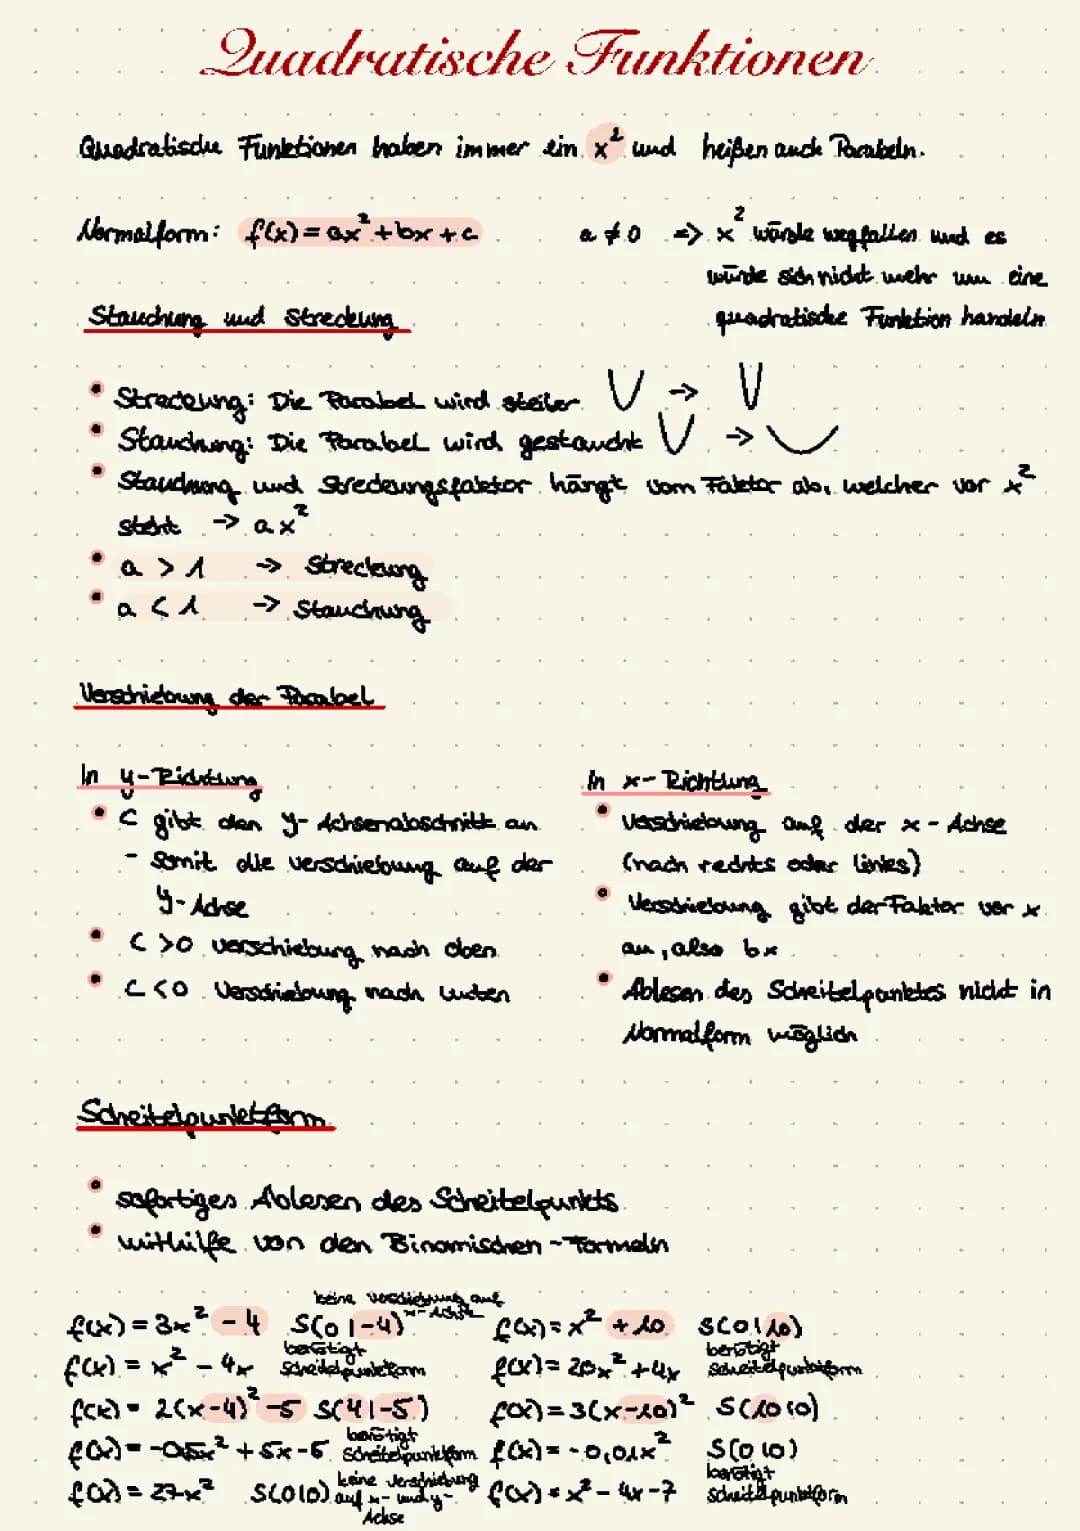 Quadratische Funktionen
Quadratische Funktionen haben immer ein x² und heißen auch Parabeln.
Normalform: f(x) = ax² + bx + c
a ≠ 0 => x² würde wegfallen und es
würde sich nicht mehr um eine
quadratische Funktion handeln
Stauchung und Streckung
• Streckung: Die Parabel wird steiler →
• Stauchung: Die Parabel wird gestaucht →
• Stauchung und Streckungsfaktor hängt vom Faktor ab, welcher vor x²
steht → ax²
• a > 1 → Streckung
• a < 1 → Stauchung
Verschiebung der Parabel
In y-Richtung
• C gibt den y-Achsenabschnitt an
- Somit die Verschiebung auf der
y-Achse
• C > 0 Verschiebung nach oben
• C < 0 Verschiebung nach unten
In x-Richtung
• Verschiebung auf der x-Achse
(nach rechts oder links)
• Verschiebung gibt der Faktor vor x
an, also bx
• Ablesen des Scheitelpunktes nicht in
Normalform möglich
Scheitelpunktform
• sofortiges Ablesen des Scheitelpunkts
• mithilfe von den Binomischen-Formeln
f(x) = 3x² - 4 S(0|-4) keine Verschiebung auf x-Achse
f(x) = x² - 4x benötigt Scheitelpunktform
f(x) = 2(x-4)² - 5 S(4|-5)
f(x) = -0,5x² + 5x - 5 benötigt Scheitelpunktform
f(x) = 27x² S(0|0) keine Verschiebung auf x- und y-Achse
f(x) = x² + 10 S(0|10)
f(x) = 20x² + 4x benötigt Scheitelpunktform
f(x) = 3(x-10)² S(10|0)
f(x) = -0,01x² S(0|0)
f(x) = x² - 4x - 7 benötigt Scheitelpunktform